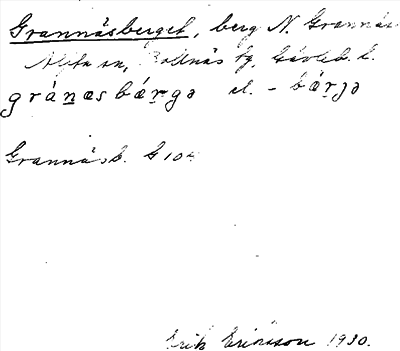 Grannäsberget, berg N. Grannäs
Alfta sn, Bollnäs tg, Gävleb. l.
gránæsbárgə el. - bárjə
Grannäsb. G 104
Erik Eriksson 1930.